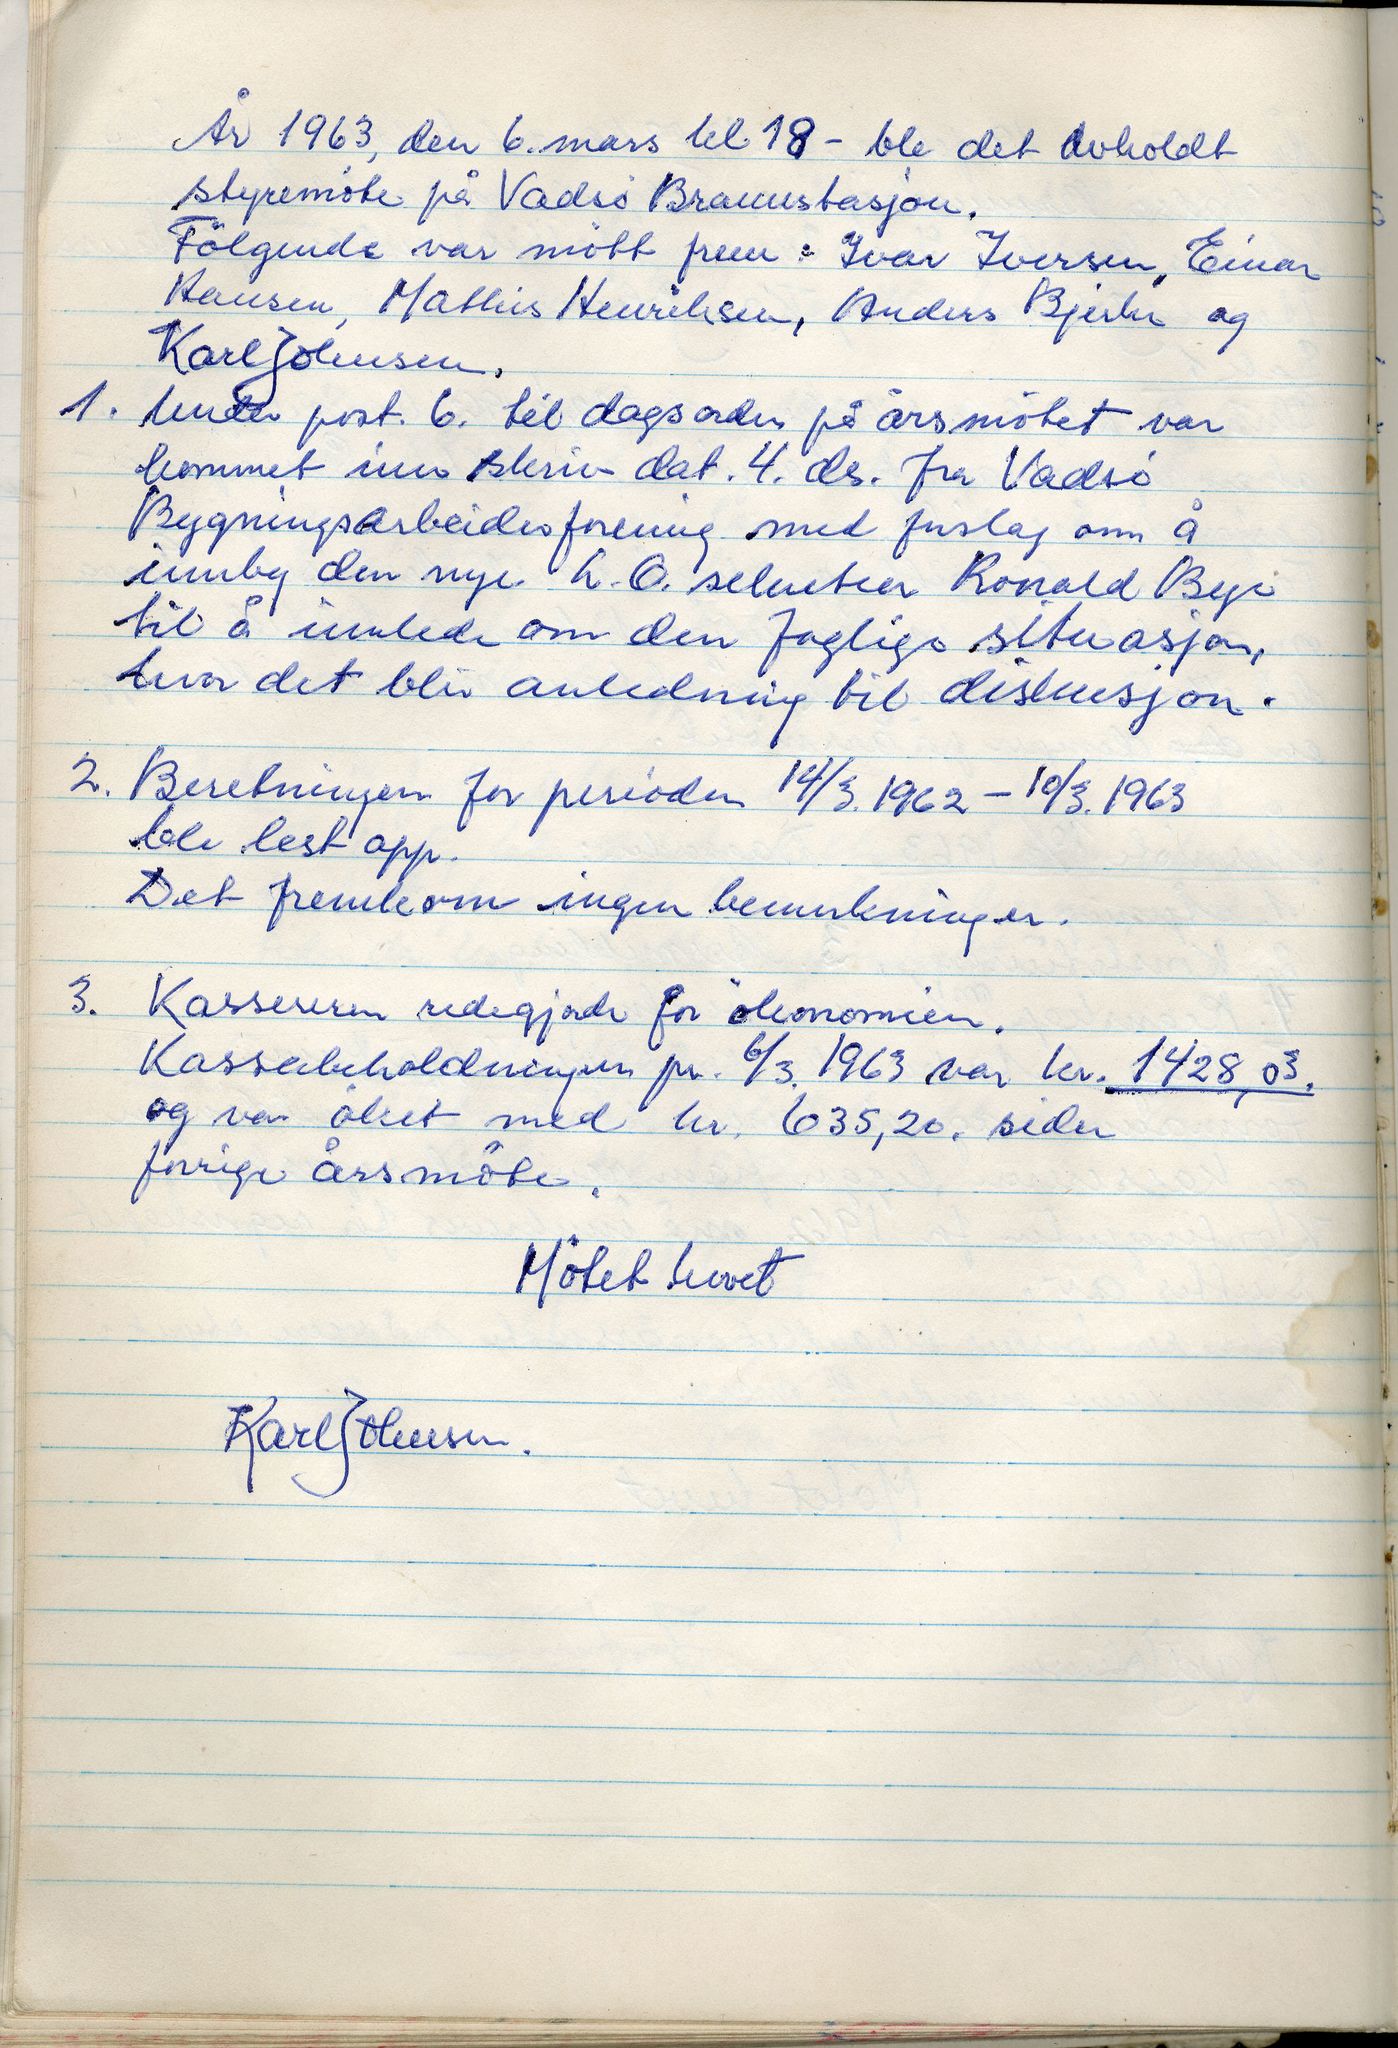 År 1963, den 6. mars kl 18 - ble det avholdt
styremöte på Vadsö Brannstasjon.
Fölgende var mött frem: Ivar Iversen, Einar
Hansen, Mathis Henriksen, Anders Bjerke og
Karl Johnsen.
1. Under post. 6. til dagsorden på årsmötet var
kommet inn skriv dat. 4. ds. fra Vadsö
Bygningsarbeiderforening med forslag om å
innby den nye L.O. sekretær Ronald Bye
til å innlede om den faglige situasjon,
hvor det blir anledning til diskusjon.
2. Beretningen for perioden 14/3. 1962 - 10/3. 1963
ble lest opp.
Det fremkom ingen bemerkninger.
3. Kassereren redegjorde for ökonomien.
Kassabeholdningen pr. 6/3. 1963 var kr. 1428,03.
og var öket med kr. 635,20. siden
forrige årsmöte.
Mötet hevet
Karl Johnsen.